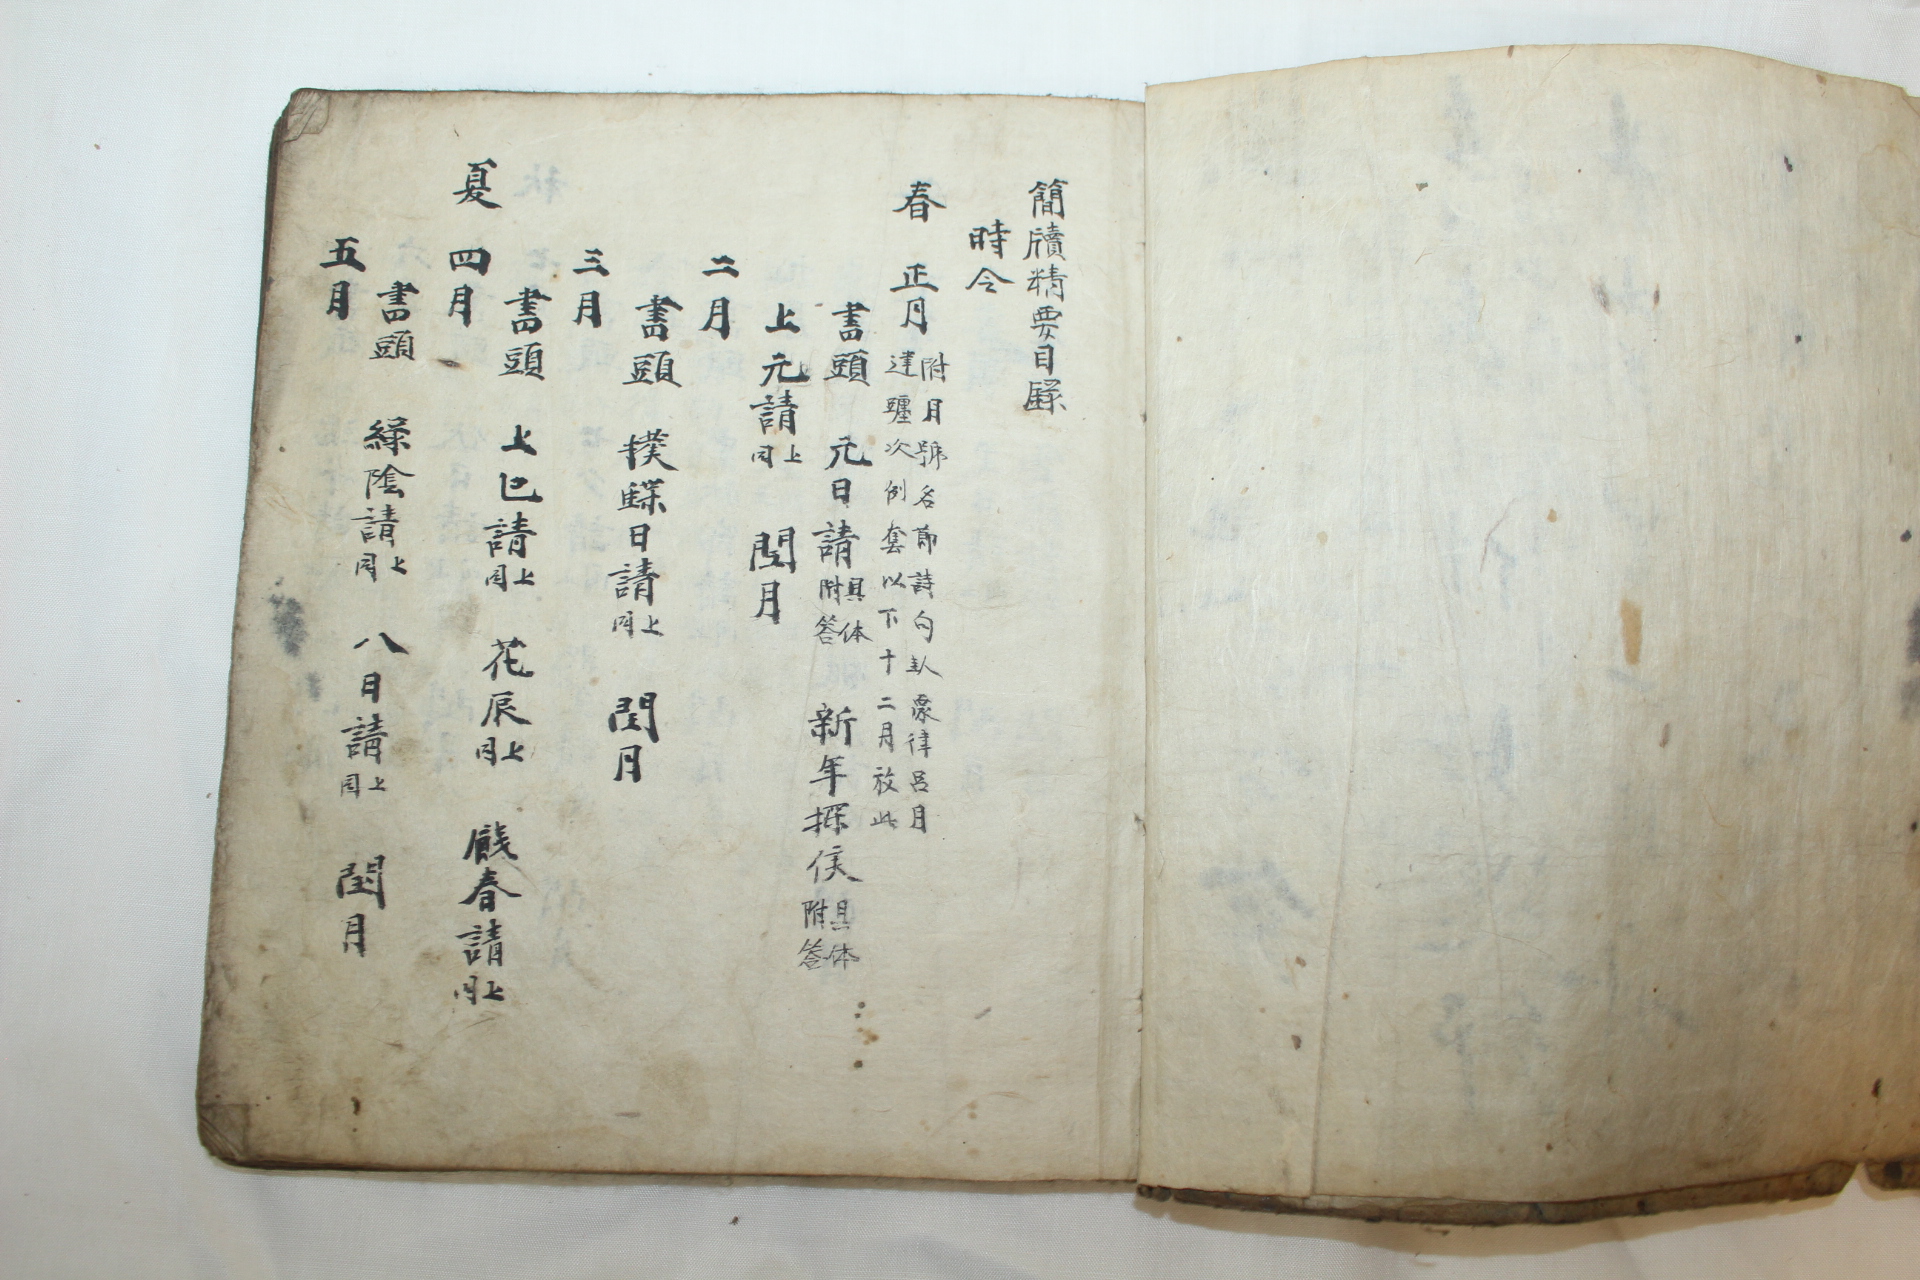 簡牘精要目錄
時令
春 正月 附月號名節詩句卦彖律呂月
建躔次例套以下十二月放此
書頭 元日請 具体附答 新年探候 具体附答
上元請 上同 閏月
二月
書頭 撲蝶日請 上同 閏月
三月
書頭 上巳請 上同 花辰 上同 餞春請 上同
夏 四月
書頭 綠陰請 上同 八日請 上同 閏月
五月